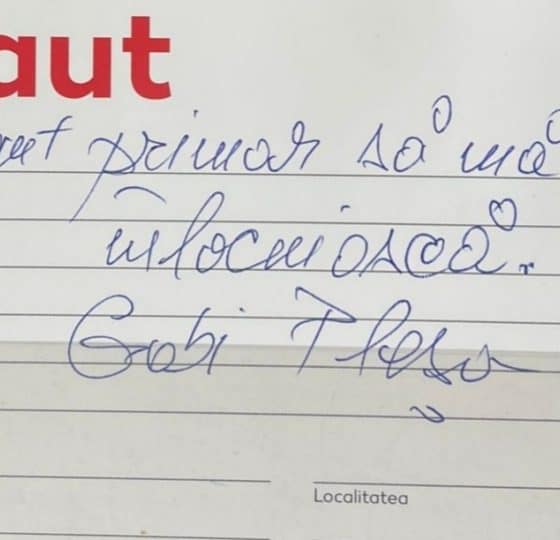 aut
primar să mă
înlocuiască.
Gabi Pleșa
Localitatea